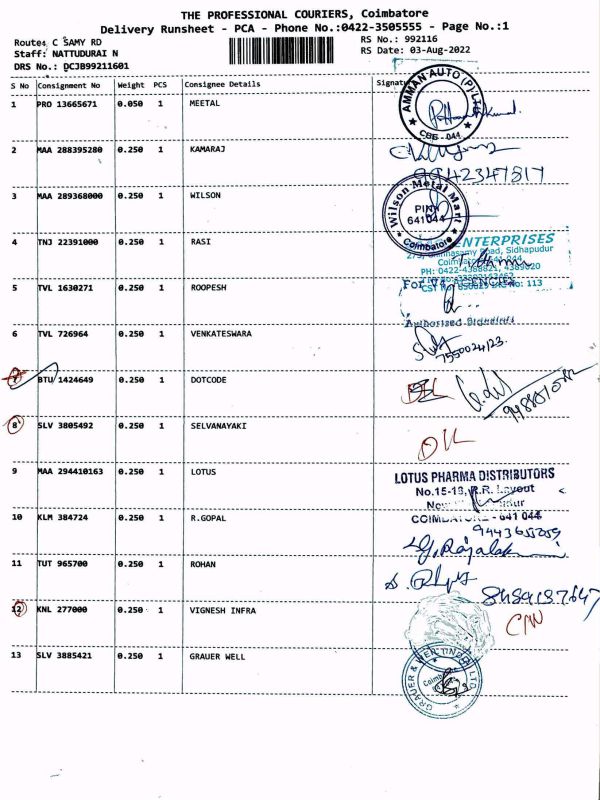 THE PROFESSIONAL COURIERS, Coimbatore
Delivery Runsheet - PCA - Phone No.:0422-3505555 - Page No.:1
Route: C SAMY RD
RS No.: 992116
Staff: NATTUDURAI N
RS Date: 03-Aug-2022
DRS No.: DCJB99211601
S No Consignment No Weight PCS Consignee Details Signatu
1 PRO 13665671 0.050 1 MEETAL
AMMAN AUTO (P) LTD
CBE - 044
2 MAA 288395280 0.250 1 KAMARAJ
3 MAA 289368000 0.250 1 WILSON
Wilson Metal Mart
PIN
641044
Coimbatore
4 TNJ 22391000 0.250 1 RASI
ENTERPRISES
Road, Sidhapudur
PH: 0422-4388821, 4389020
5 TVL 1630271 0.250 1 ROOPESH
For V4 AGENCIES
Authorised Signatory
6 TVL 726964 0.250 1 VENKATESWARA
7550024123
7 BTU 1424649 0.250 1 DOTCODE
8 SLV 3805492 0.250 1 SELVANAYAKI
DL
9 MAA 294410163 0.250 1 LOTUS
LOTUS PHARMA DISTRIBUTORS
No.15-19, R.R. Layout
COIMBATORE - 641 044
10 KLM 384724 0.250 1 R.GOPAL
9443655059
11 TUT 965700 0.250 1 ROHAN
8489187647
12 KNL 277000 0.250 1 VIGNESH INFRA
C/N
13 SLV 3885421 0.250 1 GRAUER WELL
GRAUER & WEIL (INDIA) LTD.
Coimbatore